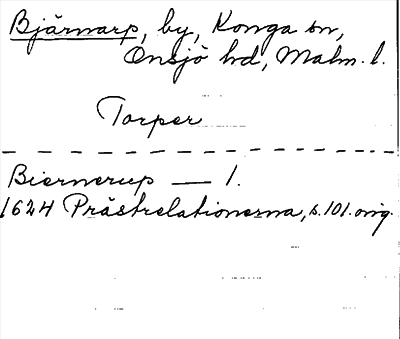 Bjärnarp, by, Konga sn,
Onsjö hd, Malm. l.
Torper
Biernerup — 1.
1624 Prästrelationerna, s. 101. orig.